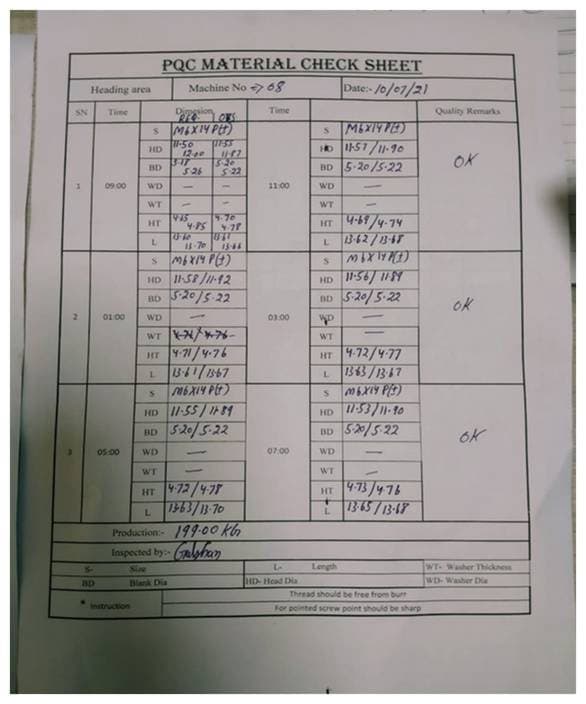 PQC MATERIAL CHECK SHEET
Heading area Machine No => 08 Date:- 10/07/21
SN Time Dimesion Time Quality Remarks
REQ. OBS
S M6X14 P(+) S M6X14 P(+)
HD 11.50 12.00 11.55 11.87 HD 11.57/11.90 OK
BD 5.18 5.26 5.20 5.22 BD 5.20/5.22
1 09:00 WD — — 11:00 WD —
WT — — WT —
HT 4.65 4.85 4.70 4.78 HT 4.69/4.74
L 13.60 13.70 13.61 13.66 L 13.62/13.68
S M6X14 P(+) S M6X14 P(+)
HD 11.58/11.92 HD 11.56/11.89
BD 5.20/5.22 BD 5.20/5.22 OK
2 01:00 WD — 03:00 WD —
WT 4.71/4.76 WT —
HT 4.71/4.76 HT 4.72/4.77
L 13.61/13.67 L 13.63/13.67
S M6X14 P(+) S M6X14 P(+)
HD 11.55/11.89 HD 11.53/11.90
BD 5.20/5.22 BD 5.20/5.22 OK
3 05:00 WD — 07:00 WD —
WT — WT —
HT 4.72/4.78 HT 4.73/4.76
L 13.63/13.70 L 13.65/13.68
Production:- 199.00 KG
Inspected by:-
S- Size L- Length WT- Washer Thickness
BD Blank Dia HD- Head Dia WD- Washer Dia
* Instruction Thread should be free from burr
For pointed screw point should be sharp